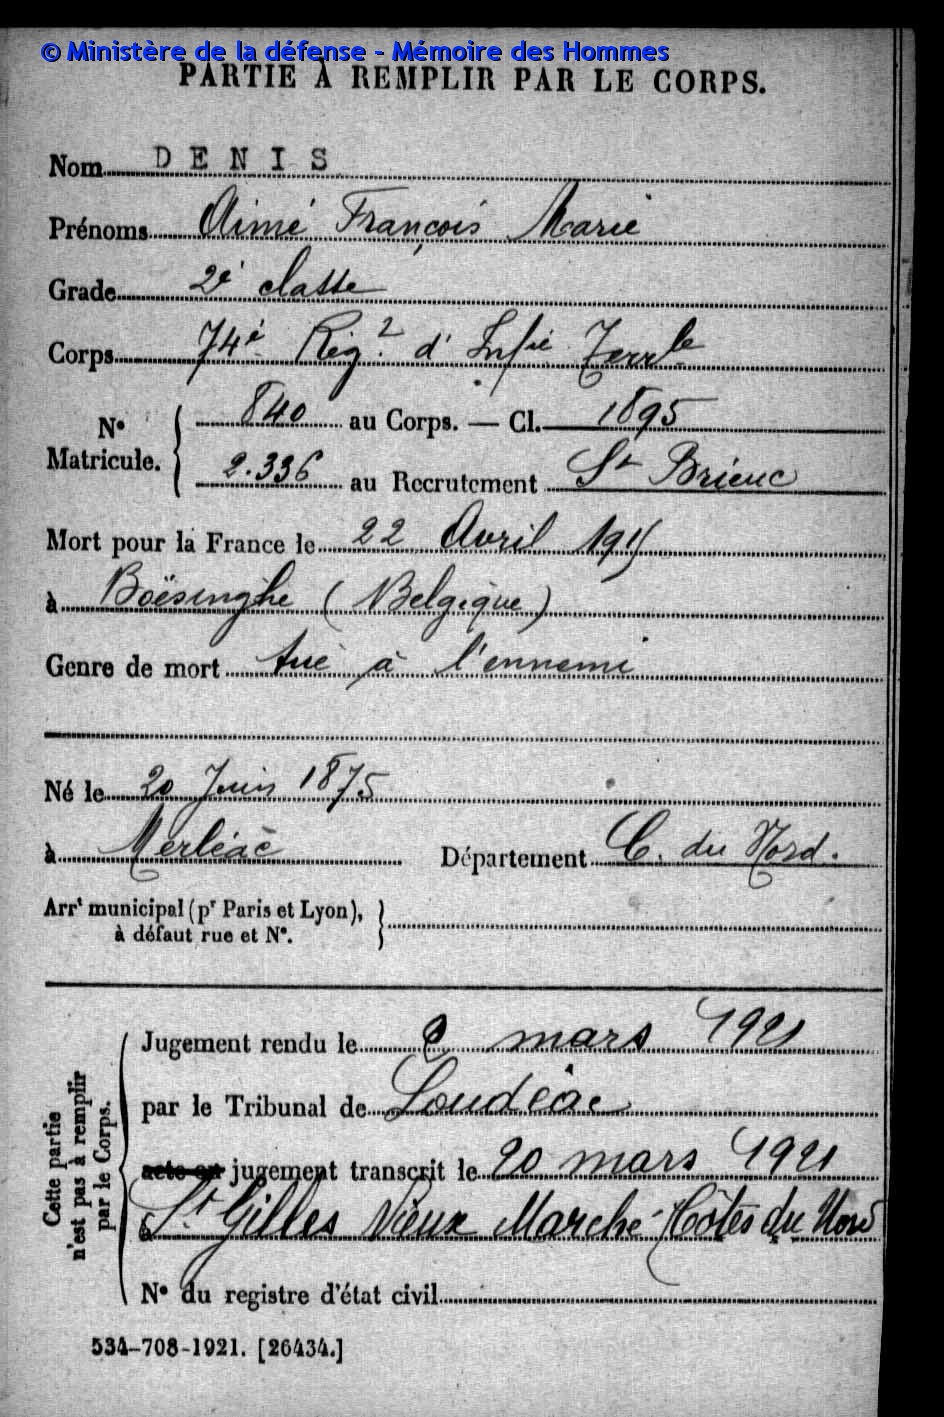 © Ministère de la défense - Mémoire des Hommes
PARTIE À REMPLIR PAR LE CORPS.
Nom DENIS
Prénoms Aimé François Marie
Grade 2e classe
Corps 74e Régt d'Infie Terrle
No Matricule. { 840 au Corps. — Cl. 1895
2.336 au Recrutement St Brieuc
Mort pour la France le 22 Avril 1915
à Boësinghe (Belgique)
Genre de mort tué à l'ennemi
Né le 20 Juin 1875
à Merléac Département C. du Nord.
Arrt municipal (pr Paris et Lyon),
à défaut rue et No.
Cette partie
n'est pas à remplir
par le Corps.
Jugement rendu le mars 1921
par le Tribunal de Loudéac
acte ou jugement transcrit le 20 mars 1921
à St Gilles Vieux Marché (Côtes du Nord
No du registre d'état civil
534-708-1921. [26434.]